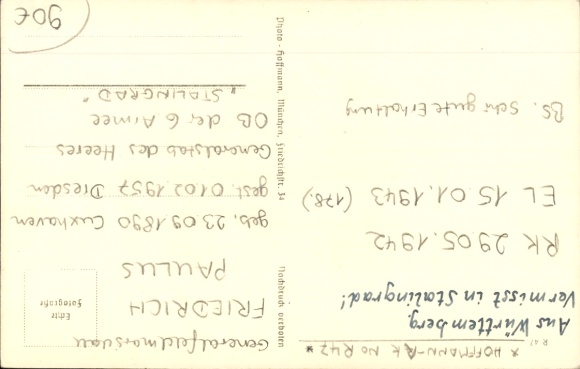 * HOFFMANN-RK No R47 *
R 47
Aus Württemberg.
Vermisst in Stalingrad!
RK 29.05.1942
EL 15.01.1943 (178.)
BS. Sehr gute Erhaltung
Photo-Hoffmann, München, Friedrichstr. 34
Nachdruck verboten
Generalfeldmarschall
FRIEDRICH
PAULUS
Echte
Fotografie
geb. 23.09.1890 Cuxhaven
gest. 01.02.1957 Dresden
Generalstab des Heeres
OB der 6 Armee
"STALINGRAD"
90€